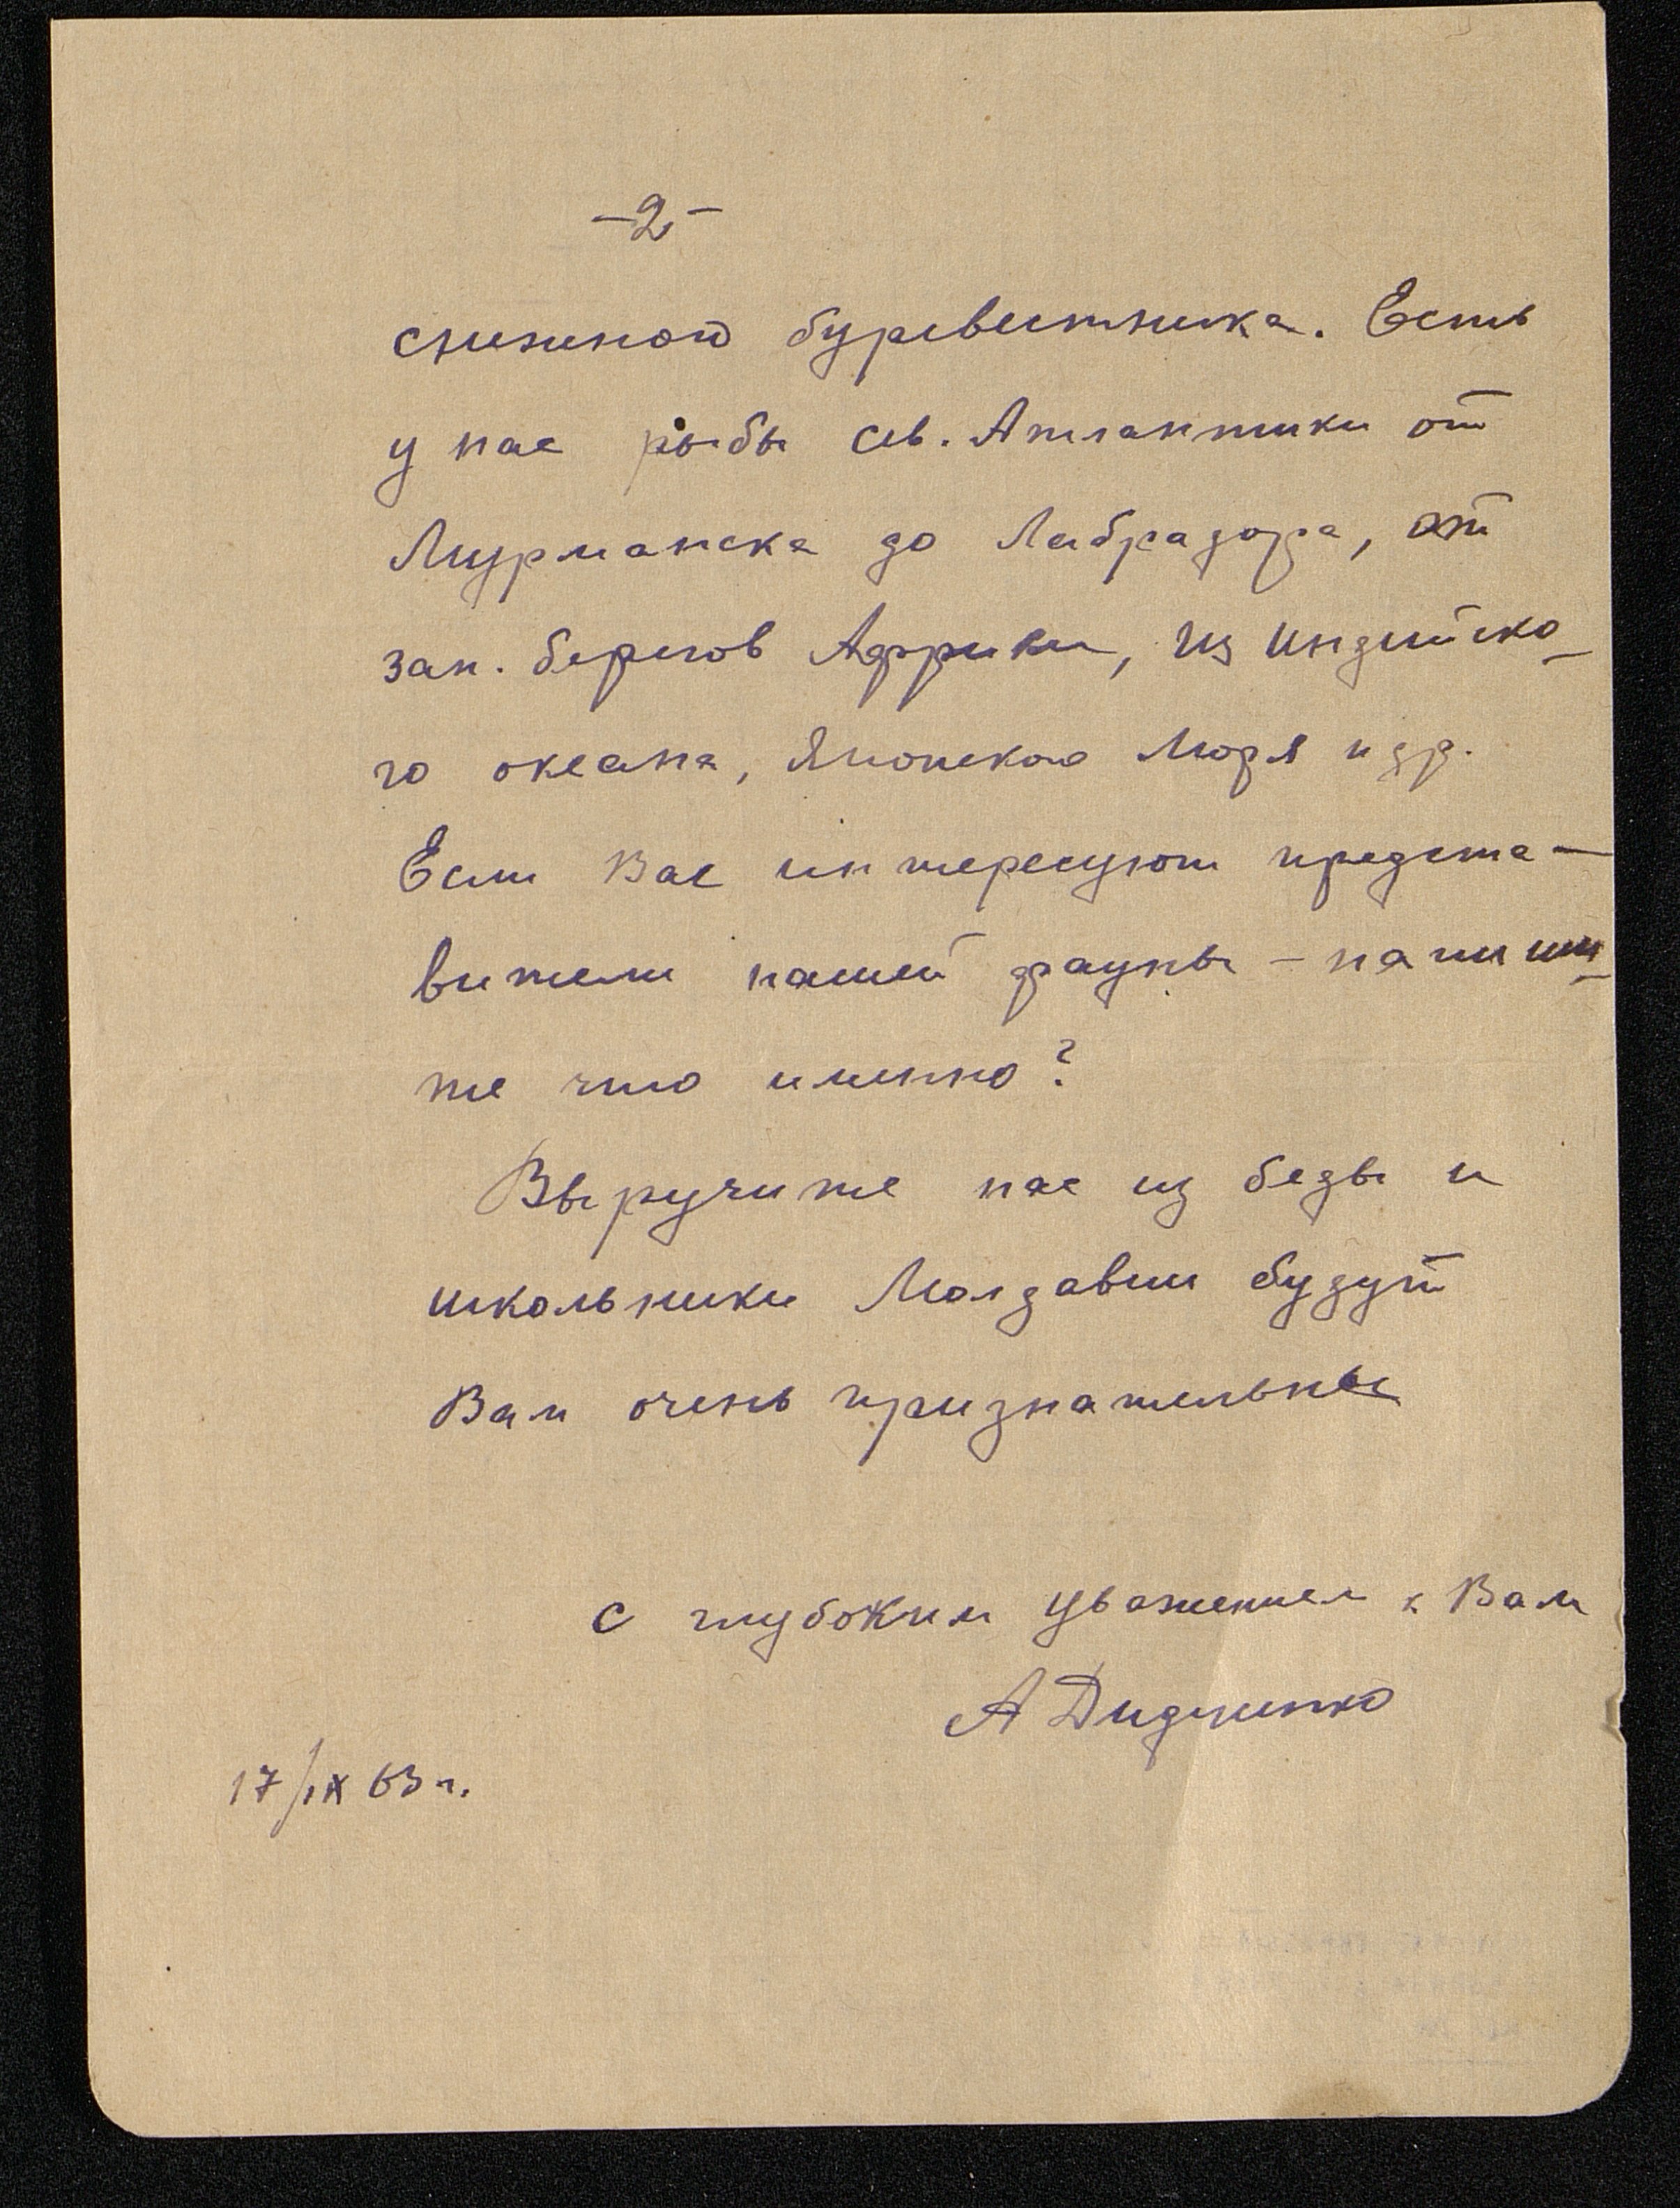 -2-
снежного буревестника. Есть
у нас рыбы сев. Атлантики от
Мурманска до Лабрадора, от
зап. берегов Африки, из Индийско-
го океана, Японского моря и др.
Если Вас интересуют предста-
вители нашей фауны - напиши-
те что именно?
Выручите нас из беды и
школьники Молдавии будут
Вам очень признательны
С глубоким уважением к Вам
А Дидченко
17/IX 63 г.